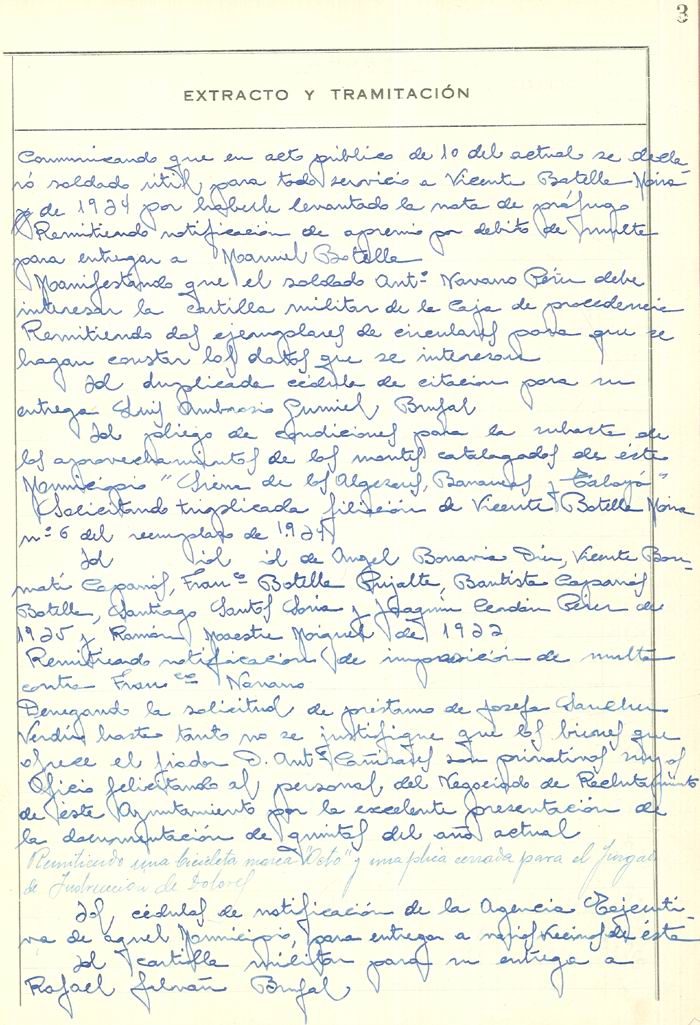 3
EXTRACTO Y TRAMITACIÓN
Comunicando que en acto público de 10 del actual se decla-
ró soldado útil para todo servicio a Vicente Botella Moira
de 1924 por haberle levantado la nota de prófugo
Remitiendo notificación de apremio por debito de multa
para entregar a Manuel Botella
Manifestando que el soldado Antº Navarro Pérez debe
interesar la cartilla militar de la Caja de procedencia
Remitiendo dos ejemplares de circulares para que se
hagan constar los datos que se interesan
Id duplicada cédula de citacion para su
entrega Luis Ambrosio Gumiel Brufal
Id pliego de condiciones para la subasta de
los aprovechamientos de los montes catalogados de este
Municipio "Sierra de los Algezares, Bananes y Tabayá"
Solicitando triplicada filiación de Vicente Botella Moira
nº 6 del reemplazo de 1924
Id id id de Angel Bonavia Díez, Vicente Bon-
matí Caparrós, Franco Botella Pujalte, Bautista Caparrós
Botella, Santiago Santos Soria y Joaquín Cerdán Pérez de
1925 y Ramón Maestre de 1922
Remitiendo notificación de imposición de multa
contra Franco Navarro
Denegando la solicitud de préstamo de Josefa Sanchez
Verdú hasta tanto no se justifique que los bienes que
ofrece el fiador D. Antº Cañizares son privativos suyos
Oficio felicitando al personal del Negociado de Reclutamiento
de este Ayuntamiento por la excelente presentación de
la documentación de quintas del año actual
Remitiendo una bicicleta marca "Oeto" y una plica cerrada para el Juzgado
de Instruccion de Dolores
Id, cédulas de notificación de la Agencia Ejecuti-
va de aquel Municipio, para entregar a varios vecinos de esta
Id cartilla militar para su entrega a
Rafael Brufal